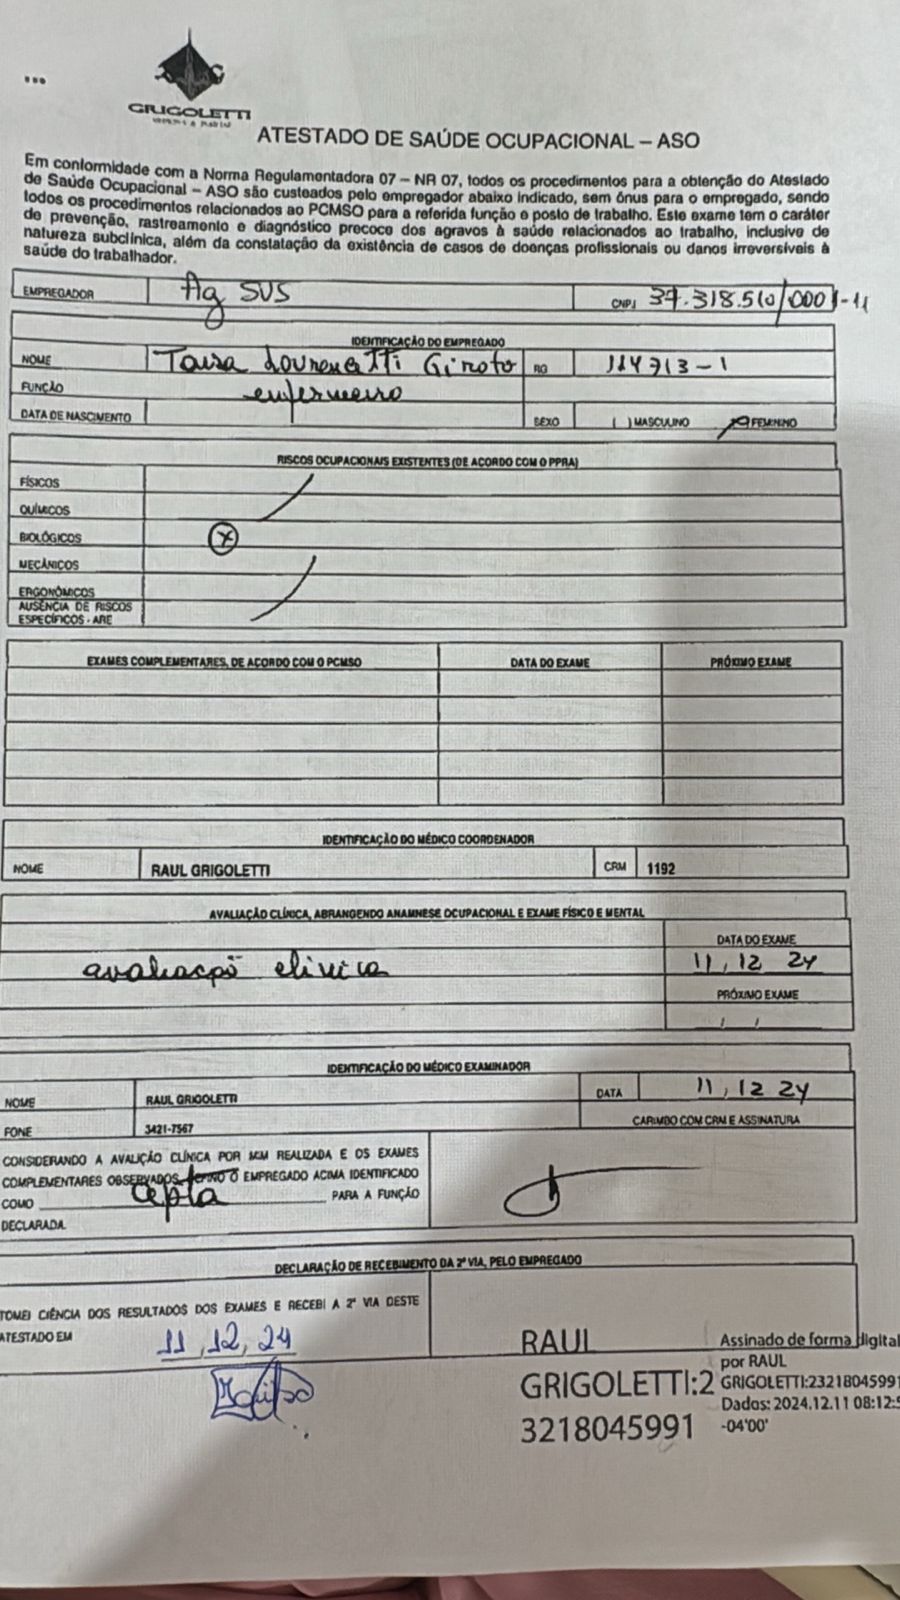 GRIGOLETTI
ATESTADO DE SAÚDE OCUPACIONAL – ASO
Em conformidade com a Norma Regulamentadora 07 – NR 07, todos os procedimentos para a obtenção do Atestado
de Saúde Ocupacional – ASO são custeados pelo empregador abaixo indicado, sem ônus para o empregado, sendo
todos os procedimentos relacionados ao PCMSO para a referida função e posto de trabalho. Este exame tem o caráter
de prevenção, rastreamento e diagnóstico precoce dos agravos à saúde relacionados ao trabalho, inclusive de
natureza subclínica, além da constatação da existência de casos de doenças profissionais ou danos irreversíveis à
saúde do trabalhador.
EMPREGADOR Ag SUS CNPJ 37.318.510/0001-11
IDENTIFICAÇÃO DO EMPREGADO
NOME Giroto RG 114713-1
FUNÇÃO enfermeiro
DATA DE NASCIMENTO SEXO ( ) MASCULINO (X) FEMININO
RISCOS OCUPACIONAIS EXISTENTES (DE ACORDO COM O PPRA)
FÍSICOS
QUÍMICOS
BIOLÓGICOS X
MECÂNICOS
ERGONÔMICOS
AUSÊNCIA DE RISCOS
ESPECÍFICOS - ARE
EXAMES COMPLEMENTARES, DE ACORDO COM O PCMSO DATA DO EXAME PRÓXIMO EXAME
IDENTIFICAÇÃO DO MÉDICO COORDENADOR
NOME RAUL GRIGOLETTI CRM 1192
AVALIAÇÃO CLÍNICA, ABRANGENDO ANAMNESE OCUPACIONAL E EXAME FÍSICO E MENTAL
DATA DO EXAME
avaliação clinica 11, 12 24
PRÓXIMO EXAME
/ /
IDENTIFICAÇÃO DO MÉDICO EXAMINADOR
NOME RAUL GRIGOLETTI DATA 11, 12 24
FONE 3421-7567 CARIMBO COM CRM E ASSINATURA
CONSIDERANDO A AVALIÇÃO CLÍNICA POR MIM REALIZADA E OS EXAMES
COMPLEMENTARES OBSERVADOS, DEFINO O EMPREGADO ACIMA IDENTIFICADO
COMO apta PARA A FUNÇÃO
DECLARADA.
DECLARAÇÃO DE RECEBIMENTO DA 2ª VIA, PELO EMPREGADO
TOMEI CIÊNCIA DOS RESULTADOS DOS EXAMES E RECEBI A 2ª VIA DESTE
ATESTADO EM 11, 12, 24
RAUL
GRIGOLETTI:2
3218045991
Assinado de forma digital
por RAUL
GRIGOLETTI:23218045991
Dados: 2024.12.11 08:12:5
-04'00'